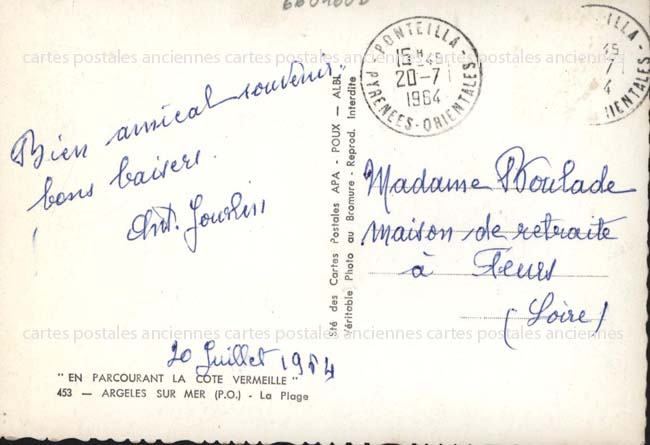 PONTEILLA
15H45
20-7
1964
PYRENEES-ORIENTALES
ILLA
45
7
4
IENTALES
Bien amical souvenir,
bons baisers.
Madame Boulade
maison de retraite
à Feurs
(Loire)
20 Juillet 1964
" EN PARCOURANT LA COTE VERMEILLE "
453 — ARGELES SUR MER (P.O.) - La Plage
Sté des Cartes Postales APA - POUX — ALBI
Véritable Photo au Bromure - Reprod. Interdite
cartes postales anciennes cartes postales anciennes cartes postales anciennes
cartes postales anciennes cartes postales anciennes cartes postales anciennes